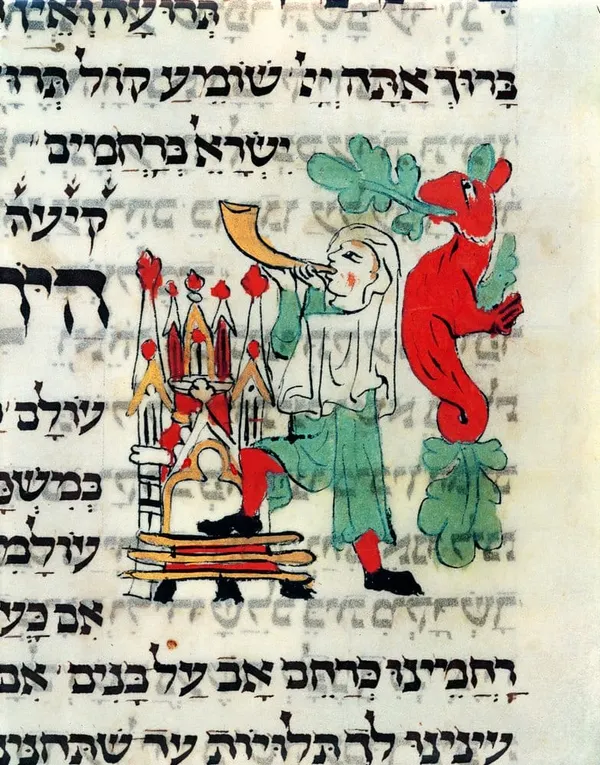 תְּרוּעָה וְאֵין
בָּרוּךְ אַתָּה יְיָ' שׁוֹמֵעַ קוֹל תְּרוּ
יִשְׂרָא' בְּרַחֲמִים
קִיעָה
היו
עוֹלָם
בְּמִשְׁפָּ
עוֹלָמִי
אִם כַּעֲ
רַחֲמֵינוּ כְּרַחֵם אָב עַל בָּנִים אִם
עֵינֵינוּ לְךָ תְלוּיוֹת עַד שֶׁתְּחָנֵּנ